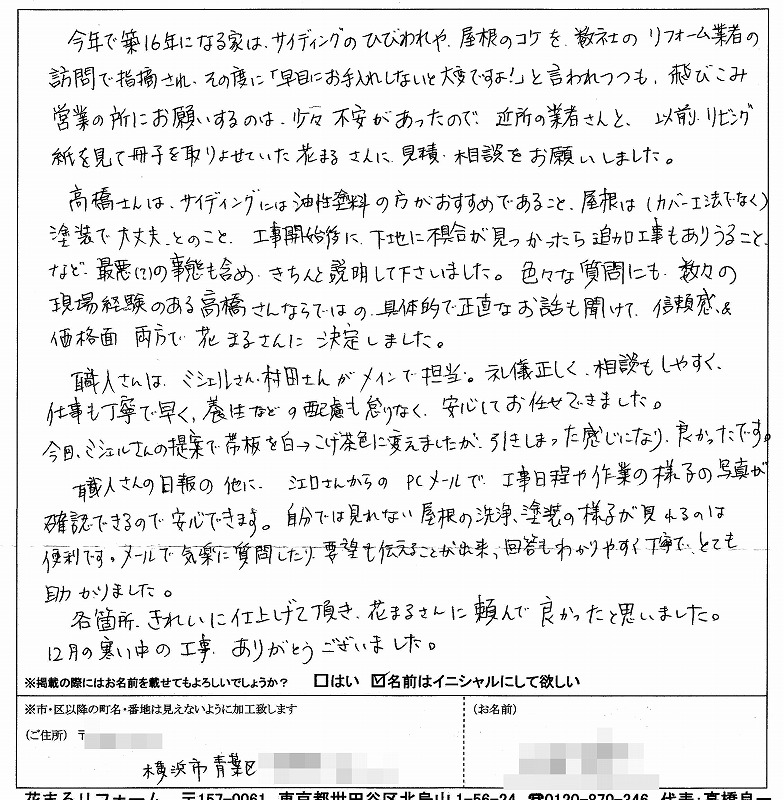 今年で築16年になる家は、サイディングのひびわれや、屋根のコケを、数社のリフォーム業者の
訪問で指摘され、その度に「早目にお手入れしないと大変ですよ!」と言われつつも、飛びこみ
営業の所にお願いするのは、少々不安があったので、近所の業者さんと、以前、リビング
紙を見て冊子を取りよせていた花まるさんに、見積・相談をお願いしました。
高橋さんは、サイディングには油性塗料の方がおすすめであること、屋根は(カバー工法でなく)
塗装で大丈夫、とのこと、工事開始後に、下地に不具合が見つかったら追加工事もありうること、
など、最悪(?)の事態も含め、きちんと説明して下さいました。色々な質問にも、数々の
現場経験のある高橋さんならではの、具体的で正直なお話も聞けて、信頼感&
価格面 両方で花まるさんに決定しました。
職人さんは、ミシェルさん・村田さんがメインで担当。礼儀正しく、相談もしやすく、
仕事も丁寧で早く、養生などの配慮も怠りなく、安心してお任せできました。
今回、ミシェルさんの提案で帯板を白→こげ茶色に変えましたが、引きしまった感じになり、良かったです。
職人さんの日報の他に、江口さんからのPCメールで、工事日程や作業の様子の写真が
確認できるので安心できます。自分では見れない屋根の洗浄、塗装の様子が見れるのは
便利です。メールで気楽に質問したり、要望も伝えることが出来、回答もわかりやすく丁寧で、とても
助かりました。
各箇所、きれいに仕上げて頂き、花まるさんに頼んで良かったと思いました。
12月の寒い中の工事、ありがとうございました。
※掲載の際にはお名前を載せてもよろしいでしょうか? □はい ☑名前はイニシャルにして欲しい
※市・区以降の町名・番地は見えないように加工致します
(お名前)
(ご住所) 〒
横浜市青葉区
花まるリフォーム 〒157-0061 東京都世田谷区北烏山1-56-24 ☎0120-870-246 代表:高橋良一